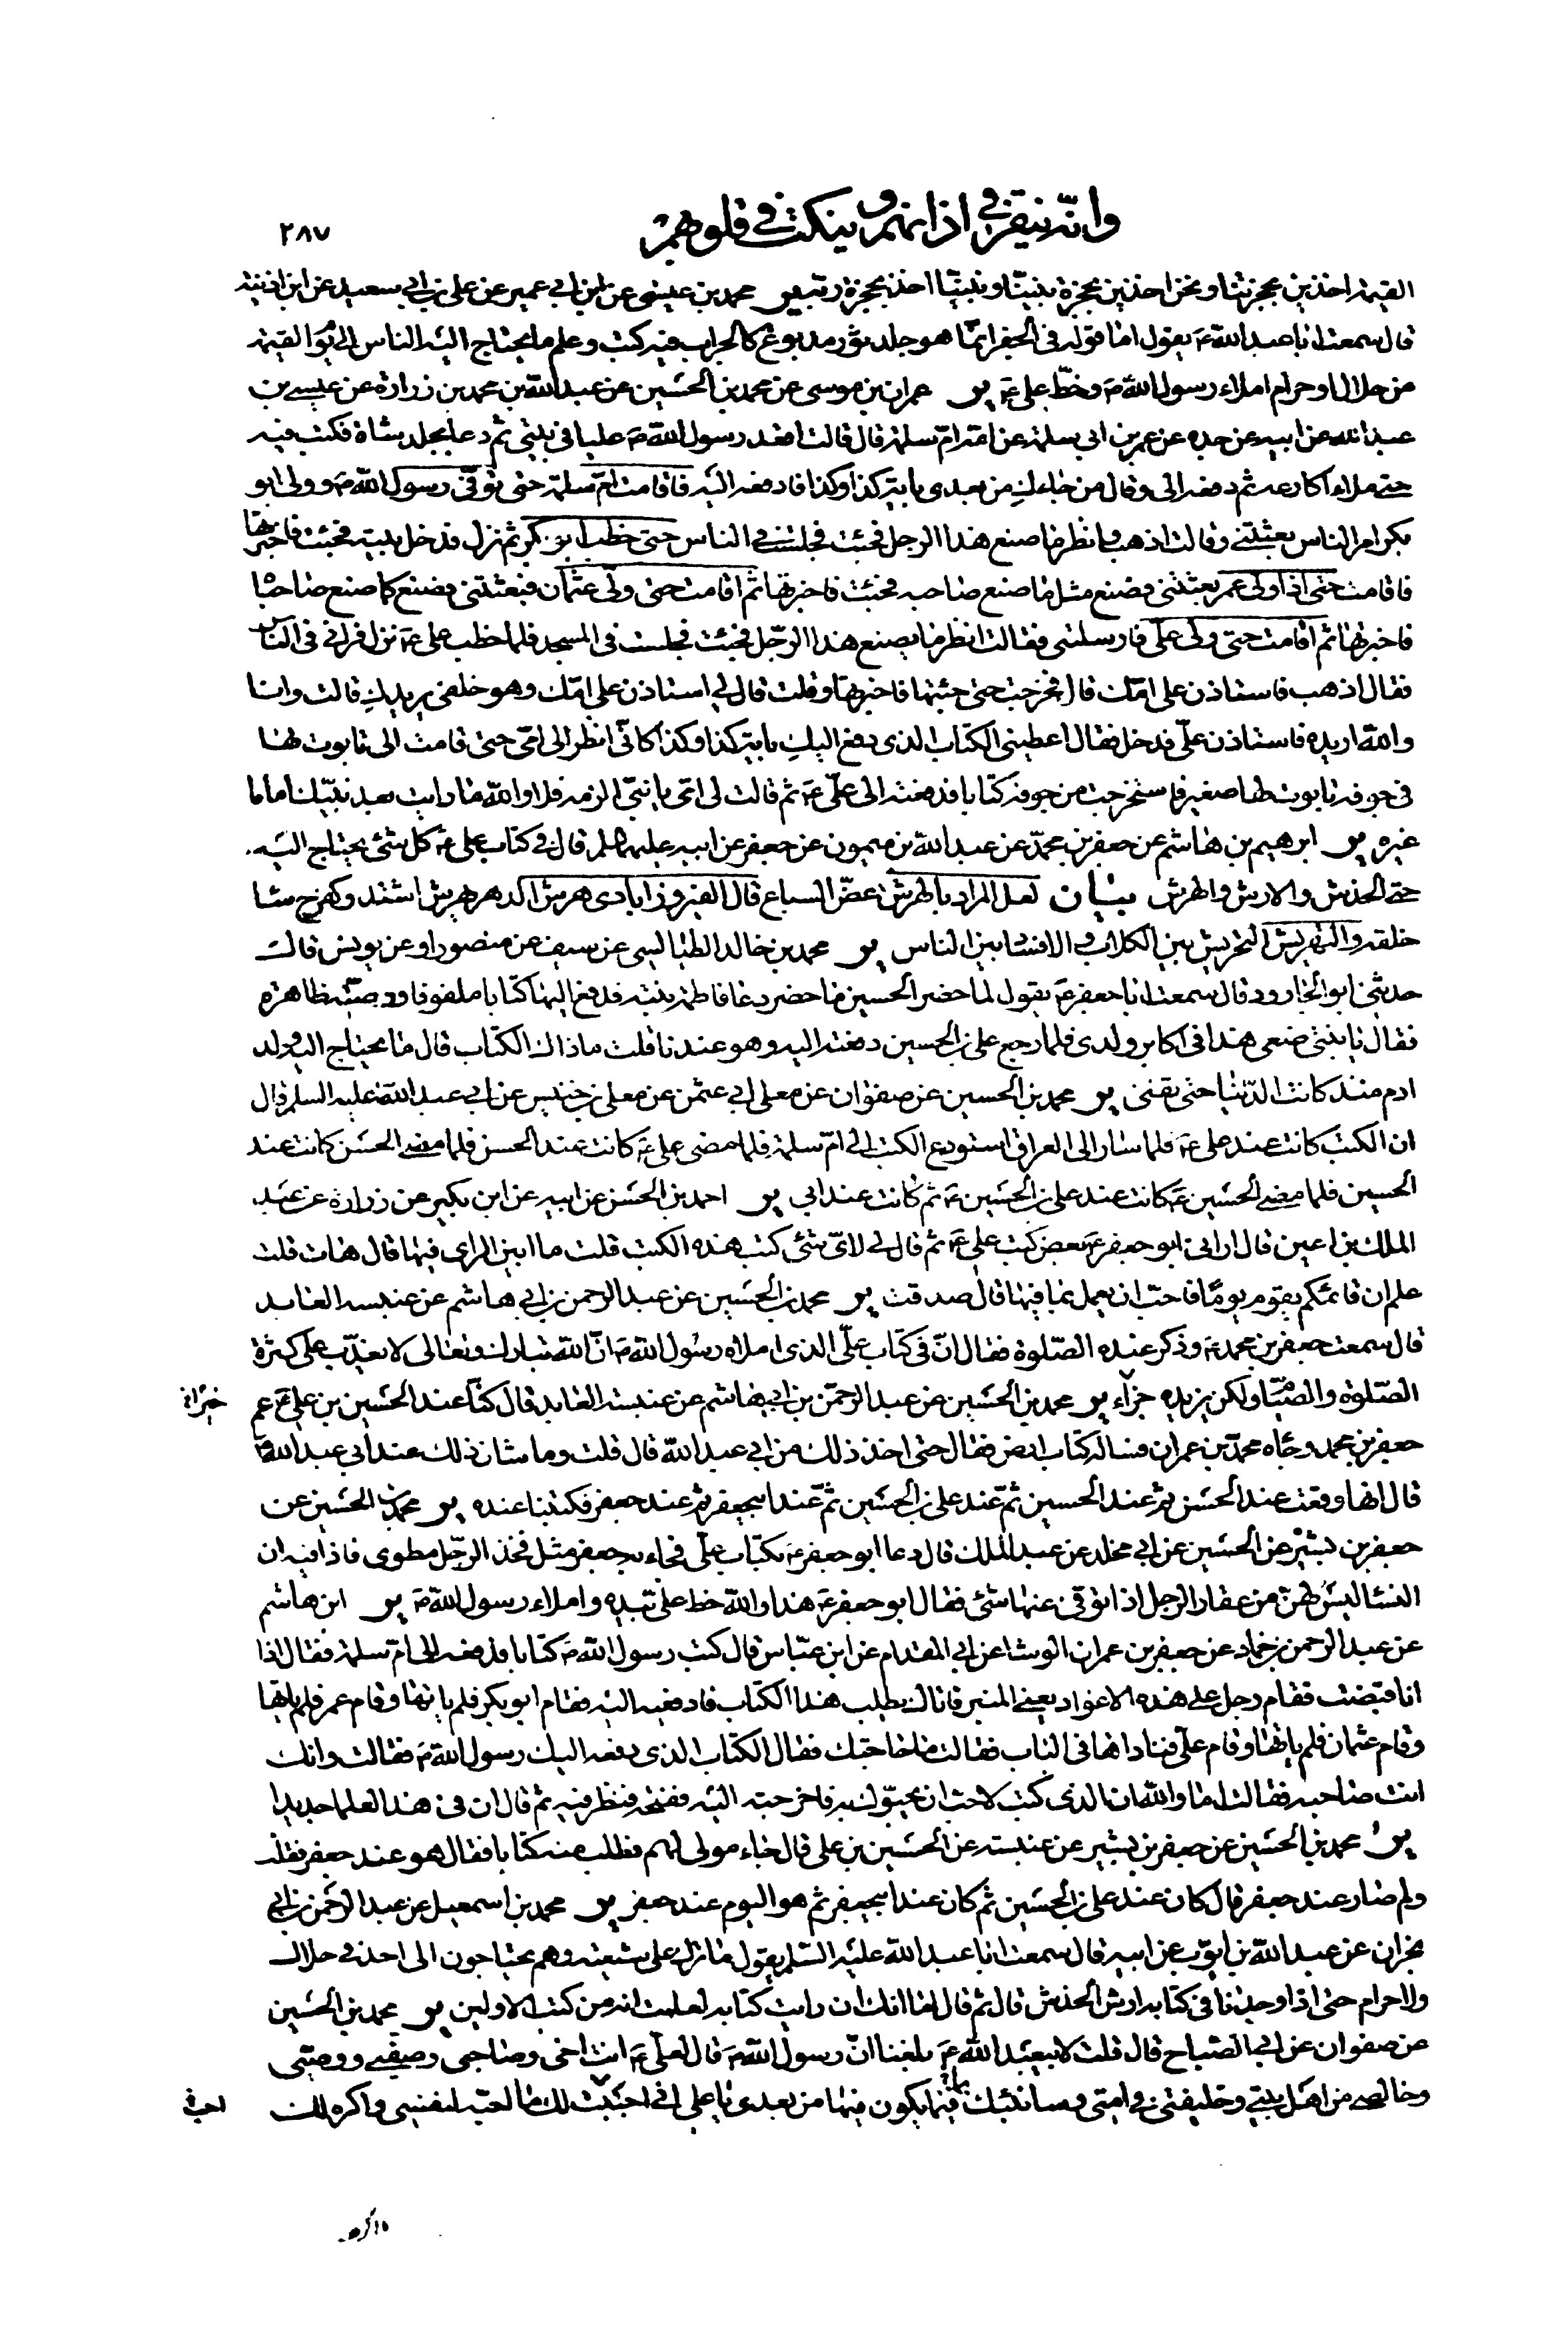 وانّه ينقر في اذانهم و ينكت في قلوبهم
٢٨٧
القيمة اخذين بحجزتنا ونحن اخذين بحجزة نبيّنا ونبيّنا اخذ بحجزة ربه ير محمد بن عيسى عن ابن ابي عمير عن علي بن ابي سعيد عن ابن اذينة
قال سمعت ابا عبد الله ع يقول اما قوله في الجفر انّما هو جلد ثور مدبوغ كالجراب فيه كتب وعلم ما يحتاج اليه الناس الى يوم القيمة
من حلال او حرام املاء رسول الله ص وخطّ علي ع ير عمران بن موسى عن محمد بن الحسين عن عبد الله بن محمد بن زرارة عن عيسى بن
عبد الله عن ابيه عن جده عن عمر بن ابي سلمة عن امه ام سلمة قال قالت اقعد رسول الله ص عليا في بيتي ثم دعا بجلد شاة فكتب فيه
حتى ملاء اكارعه ثم دفعه الى وقال من جاءك من بعدى باية كذا وكذا فادفعه اليه فاقامت ام سلمة حتى توفّى رسول الله ص وولى ابو
بكر امر الناس بعثتنى وقالت اذهب وانظر ما صنع هذا الرجل فجئت فجلست في الناس حتى خطب ابو بكر ثم نزل فدخل بيته فجئت فاخبرتها
فاقامت حتى اذا ولى عمر بعثتنى فصنع مثل ما صنع صاحبه فجئت فاخبرتها ثم اقامت حتى ولّى عثمان فبعثتنى فصنع كما صنع صاحباه
فاخبرتها ثم اقامت حتى ولى علّى فارسلتنى فقالت انظر ما يصنع هذا الرّجل فجئت فجلست في المسجد فلما خطب علي ع نزل فرانى في الناس
فقال اذهب فاستاذن على امّك قال فخرجت حتى جئتها فاخبرتها وقلت قال لي استاذن على امّك وهو خلفى يريدك قالت وانا
والله اريده فاستاذن علّى فدخل فقال اعطينى الكتاب الذى دفع اليك باية كذا وكذا كانّى انظر الى امّى حتى قامت الى تابوت لها
في جوفه تابوت لها صغير فاستخرجت من جوفه كتابا فدفعته الى علّى ع ثم قالت لى امّى يا بنّى الزمه فلا والله ما رايت بعد نبيّك اماما
غيره ير ابرهيم بن هاشم عن جعفر بن محمّد عن عبد الله بن ميمون عن جعفر عن ابيه عليهما السلم قال في كتاب علي ع كل شئ يحتاج اليه
حتى الخدش والارش والهرش بيان لعل المراد بالهرش عضّ السباع قال الفيروزابادى هرش الدهر يهرش اشتد وكفرح ساء
خلقه والتهريش التحريش بين الكلاب والافساد بين الناس ير محمد بن خالد الطيالسى عن سيف عن منصور او عن يونس قالت
حدثنى ابو الجارود قال سمعت ابا جعفر ع يقول لما حضر الحسين ما حضر دعا فاطمة بنته فدفع اليها كتابا ملفوفا ووصيّة ظاهرة
فقال يا بنتى ضعى هذا في اكابر ولدى فلما رجع علي بن الحسين دفعته اليه وهو عندنا قلت ماذاك الكتاب قال ما يحتاج اليه ولد
ادم منذ كانت الدّنيا حتى تفنى ير محمد بن الحسين عن صفوان عن معلى ابي عثمن عن معلى بن خنيس عن ابي عبد الله عليه السلم قال
ان الكتب كانت عند علي ع فلما سار الى العراق استودع الكتب الى امّ سلمة فلما مضى علي ع كانت عند الحسن فلما مضى الحسن كانت عند
الحسين فلما مضى الحسين ع كانت عند علي بن الحسين ع ثم كانت عند ابى ير احمد بن الحسن عن ابيه عن ابن بكير عن زرارة عن عبد
الملك بن اعين قال ارانى ابو جعفر ع بعض كتب علي ع ثم قال لى لاىّ شئى كتب هذه الكتب قلت ما ابين الراى فيها قال هات قلت
علم ان قائمكم يقوم يوما فاحبّ ان يعمل بما فيها قال صدقت ير محمد بن الحسين عن عبد الرحمن بن ابي هاشم عن عنبسه العابد
قال سمعت جعفر بن محمد ع وذكر عنده الصّلوة فقال انّ في كتاب علّى الذى املاه رسول الله ص انّ الله تبارك وتعالى لا يعذّب على كثرة
الصّلوة والصّيام ولكن يزيده جزاء ير محمد بن الحسين عن عبد الرحمن بن ابي هاشم عن عنبسة العابد قال كنّا عند الحسين بن علي ع عم
جعفر بن محمد وجاءه محمّد بن عمران فساله كتاب ارض فقال حتى اخذ ذلك من ابى عبد الله قال قلت وما شان ذلك عند ابي عبد الله ع
قال انها وقعت عند الحسن ثم عند الحسين ثمّ عند علي بن الحسين ثمّ عند ابي جعفر ثم عند جعفر فكتبنا عنده ير محمد بن الحسين عن
جعفر بن بشير عن الحسين عن ابي مخلد عن عبد الملك قال دعا ابو جعفر ع بكتاب علّى فجاء به جعفر مثل فخذ الرّجل مطوى فاذا فيه ان
النساء ليس لهنّ من عقار الرجل اذا توفى عنها شئى فقال ابو جعفر ع هذا والله خط علي بيده واملاء رسول الله ص ير ابن هاشم
عن عبد الرحمن بن حماد عن جعفر بن عمران الوشاء عن ابي المقدام عن ابن عبّاس قال كتب رسول الله ص كتابا فدفعه الى ام سلمة فقال اذا
انا قبضت فقام رجل على هذه الاعواد يعنى المنبر فاتاك يطلب هذا الكتاب فادفعيه اليه فقام ابو بكر فلم ياتها وقام عمر فلم ياتها
وقام عثمان فلم ياتها وقام علّى فناداها في الباب فقالت ما حاجتك فقال الكتاب الذى دفعه اليك رسول الله ص فقالت وانك
انت صاحبه فقالت اما والله ان الذى كتب لاحب ان يحبوك به فاخرجته اليه ففتحه فنظر فيه ثم قال ان في هذا لعلما جديدا
ير محمد بن الحسين عن جعفر بن بشير عن عنبسة عن الحسين بن على قال جاء مولى لهم فطلب منه كتابا فقال هو عند جعفر فقلت
ولم صار عند جعفر قال كان عند علي بن الحسين ثم كان عند ابي جعفر ثم هو اليوم عند جعفر ير محمد بن اسمعيل عن عبد الرحمن بن ابي
نجران عن عبد الله بن ايوّب عن ابيه قال سمعت ابا عبد الله عليه السّلم يقول ما ترك علي شيعته وهم يحتاجون الى احد في حلال
ولا حرام حتى اذا وجدنا في كتابه ارش الخدش قال ثم قال اما انك ان رايت كتابه لعلمت انه من كتب الاولين ير محمد بن الحسين
عن صفوان عن ابي الصّباح قال قلت لابي عبد الله ع بلغنا انّ رسول الله ص قال لعلّى ع انت اخى وصاحبى وصفيى ووصيّى
وخالصى من اهل بيتى وخليفتى في امتى وسانبئك فيما يكون فيها من بعدى يا على انى احببت لك ما احبّه لنفسى واكره لك